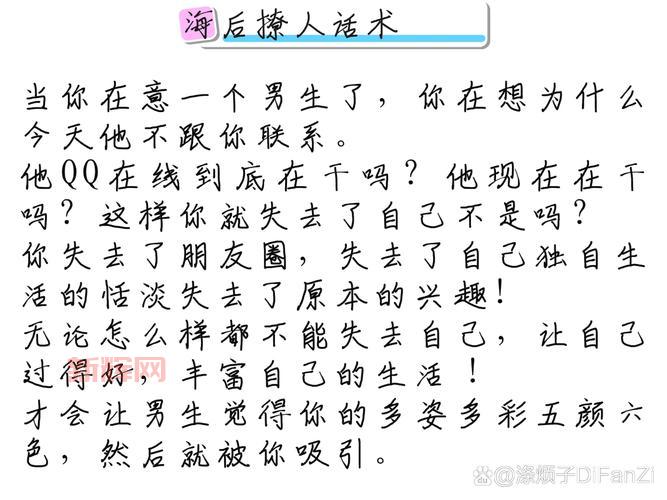 海后撩人话术
当你在意一个男生了，你在想为什么
今天他不跟你联系。
他QQ在线到底在干吗？他现在在干
吗？这样你就失去了自己不是吗？
你失去了朋友圈，失去了自己独自生
活的恬淡失去了原本的兴趣！
无论怎么样都不能失去自己，让自己
过得好，丰富自己的生活！
新辉网
才会让男生觉得你的多姿多彩五颜六
色，然后就被你吸引。
@涤烦子DiFanZi